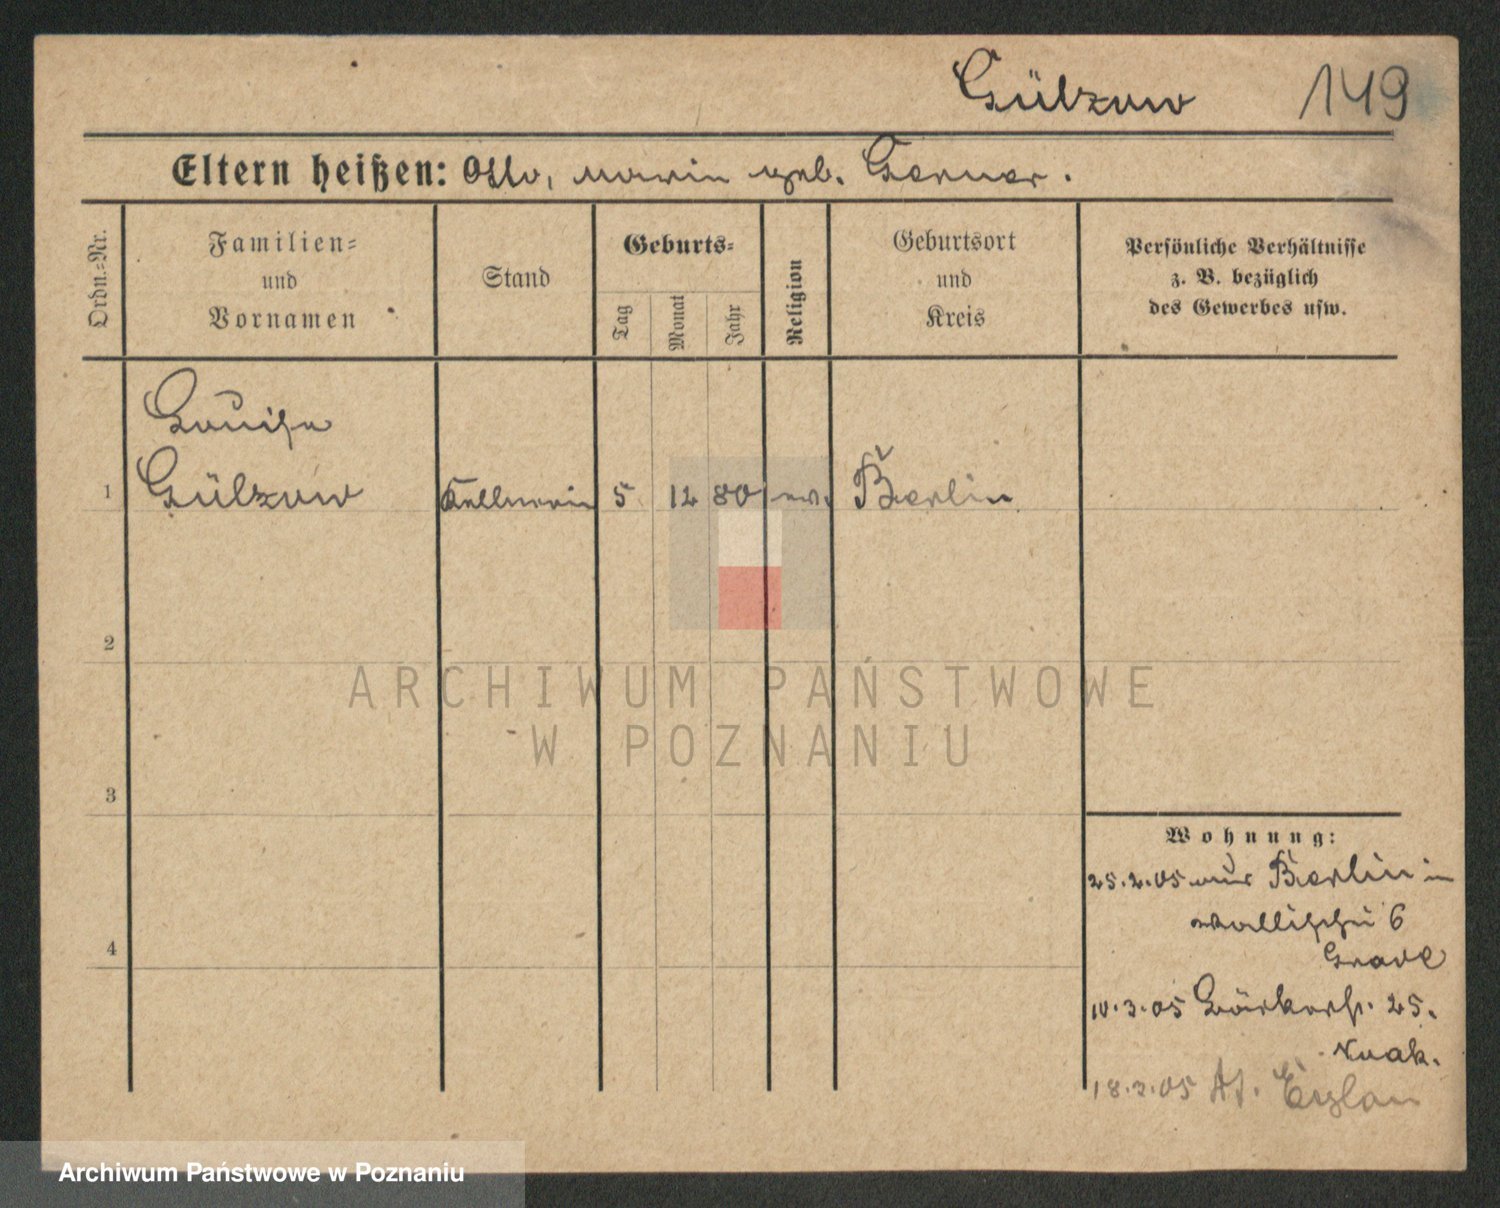 Gülzow 149
Eltern heißen: Otto, Marie geb. Gerner.
Ordn.=Nr.
Familien=
und
Vornamen
Stand
Geburts=
Tag
Monat
Jahr
Religion
Geburtsort
und
Kreis
Persönliche Verhältnisse
z. B. bezüglich
des Gewerbes usw.
Louise
1 Gülzow Kellnerin 5 12 80 ev. Berlin
2
3
4
Wohnung:
25.2.05 aus Berlin in
Wallischei 6
10.3.05 Bäckerstr. 25.
18.3.05
ARCHIWUM PAŃSTWOWE
W POZNANIU
Archiwum Państwowe w Poznaniu